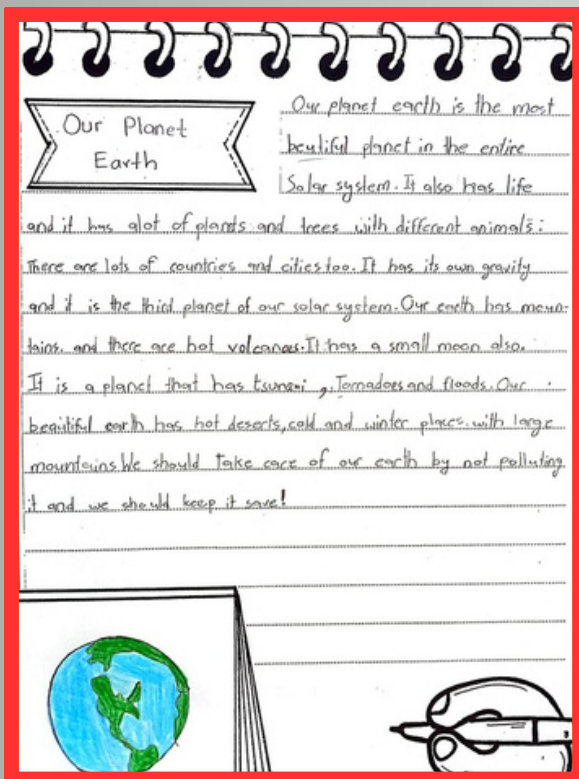 Our Planet
Earth
Our planet earth is the most
beutiful planet in the entire
Solar system. It also has life
and it has alot of plants and trees with different animals.
There are lots of countries and cities too. It has its own gravity
and it is the third planet of our solar system. Our earth has moun-
tains. and there are hot volcanoes. It has a small moon also.
It is a planet that has tsunami , Tornadoes and floods. Our
beautiful earth has hot deserts, cold and winter places. with large
mountains. We should Take care of our earth by not polluting
it and we should keep it save!